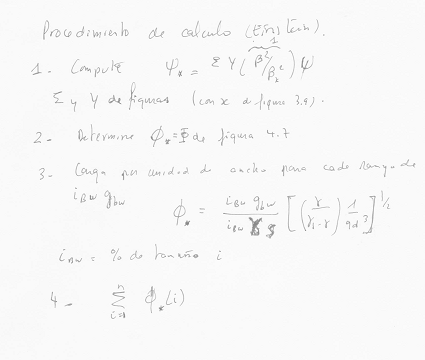 Procedimiento de calculo (Einstein).
1
1 - Compute ψ* = Σ Y (β²/βx²) ψ
Σ y Y de figuras (con x de figura 3.9).
2 - Determine φ* = Φ de figura 4.7
3 - Carga por unidad de ancho para cada rango de
iBw gbw
φ* = iBw gbw / iBw γs [(γ/γ1-γ) 1/gd³]^1/2
iBw = % de tamaño i
4 - Σ i=1 n φ*(i)